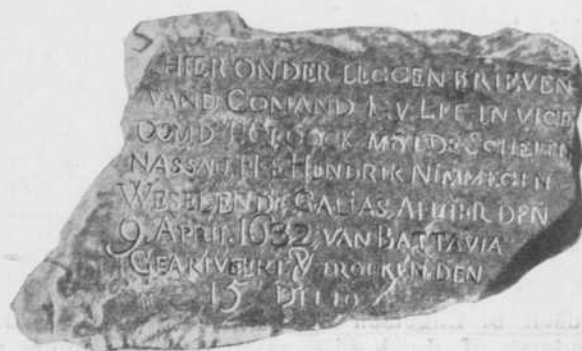 HIER ONDER LEGGEN BRIEVEN
VAND COMAND V LEE VICE
COMD
NASSAU HENDRIK NIMMEGEN
WESEL ENDE GALIAS. ALHIER DEN
9. APRIL. 1632 VAN BATTAVIA
GEARIVEERT & VTROCKEN DEN
15 DITTO